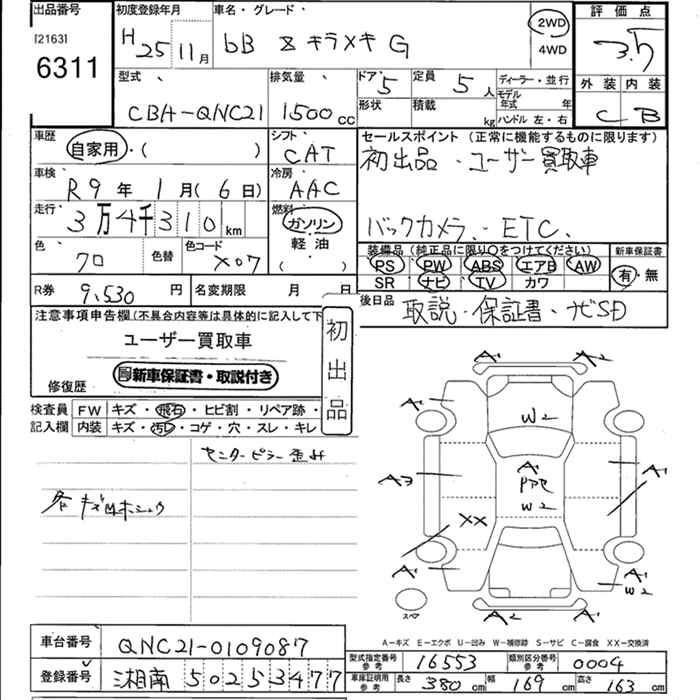 出品番号 初度登録年月 車名・グレード 評価点
[2163] H25 11月 bB Z キラメキ G 2WD 3.5
6311 4WD
外装 内装
型式 排気量 ドア 5 定員 5人 ディーラー・並行 C B
CBA-QNC21 1500cc 形状 積載 kg モデル年式 年
ハンドル 左・右
車歴 シフト セールスポイント(正常に機能するものに限ります)
自家用・( ) CAT 初出品・ユーザー買取車
車検 冷房
R9年 1月(6日) AAC
走行 燃料
3万4千310km ガソリン バックカメラ、ETC、
軽油
色 色替 色コード ( ) 装備品(純正品に限り○をつけてください) 新車保証書
クロ X07 PS PW ABS エアB AW 有・無
SR ナビ TV カワ
R券 9,530円 名変期限 月 日 後日品
取説・保証書・ナビSD
注意事項申告欄(不具合内容等は具体的に記入して下
ユーザー買取車 初出品
新車保証書・取説付き
修復歴
検査員 FW キズ・飛石・ヒビ割・リペア跡・
記入欄 内装 キズ・汚レ・コゲ・穴・スレ・キレ
センターピラー歪み
各キズ
A1 A2
A1 W2
A3 A1 A1
W2
XX
A1 A1
W2
スペア A2 A1
A-キズ E-エクボ U-凹み W-補修跡 S-サビ C-腐食 XX-交換済
車台番号 QNC21-0109087 型式指定番号 参考 16553 類別区分番号 参考 0004
登録番号 湘南 502 5 3477 車庫証明用 参考 長さ 380cm 幅 169cm 高さ 163cm